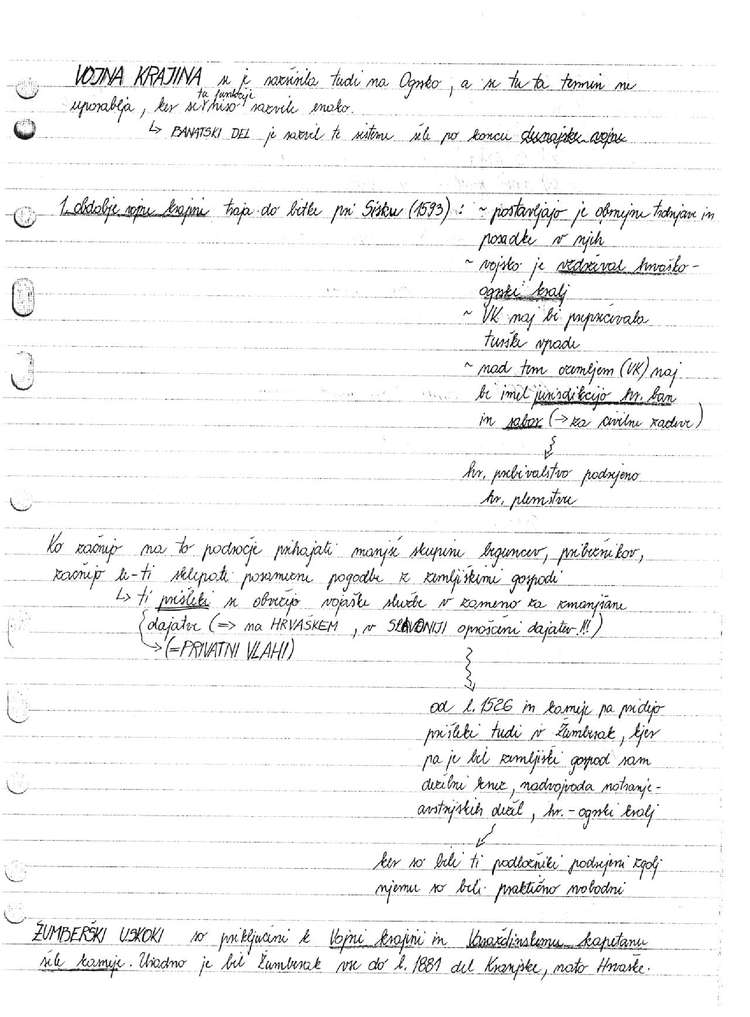 VOJNA KRAJINA se je razširila tudi na Ogrsko, a se tu ta termin ne
te funkcije
uporablja, ker se niso razvile enako.
↳ BANATSKI DEL je razvil te sisteme šele po koncu dunajske vojne
1. obdobje vojne krajine traja do bitke pri Sisku (1593) : ~ postavljajo je obmejne trdnjave in
posadke v njih
~ vojsko je vzdrževal hrvaško-
ogrski kralj
~ VK naj bi preprečevala
turške vpade
~ nad tem ozemljem (VK) naj
bi imel jurisdikcijo hr. ban
in sabor (→ za civilne zadeve)
hr. prebivalstvo podrejeno
hr. plemstvu
Ko začnejo na to področje prihajati manjše skupine beguncev, pribežnikov,
začnejo le-ti sklepati posamezne pogodbe z zemljiškimi gospodi
↳ ti prišleki se obvežejo vojaške službe v zameno za zmanjšane
dajatve (=> na HRVAŠKEM, v SLAVONIJI oproščeni dajatev!!!)
→ (=PRIVATNI VLAHI)
od l. 1526 in kasneje pa pridejo
prišleki tudi v Žumberak, kjer
pa je bil zemljiški gospod sam
deželni knez, nadvojvoda notranje-
avstrijskih dežel, hr.-ogrski kralj
ker so bili ti podložniki podrejeni zgolj
njemu so bili praktično svobodni
ŽUMBERŠKI USKOKI so priključeni k Vojni krajini in Varaždinskemu kapetanu
šele kasneje. Uradno je bil Žumberak vse do l. 1881 del Kranjske, nato Hrvaške.